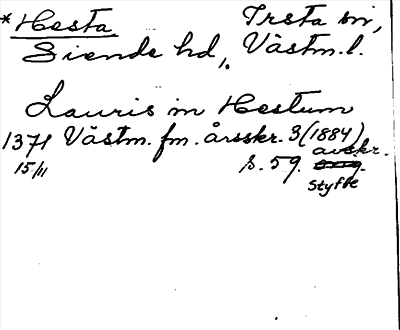 *Hesta Irsta sn,
Siende hd, Västm. l.
Lauris in Hestum
1371 Västm. fm. årsskr. 3 (1884)
15/11 s. 59. avskr.
Styffe